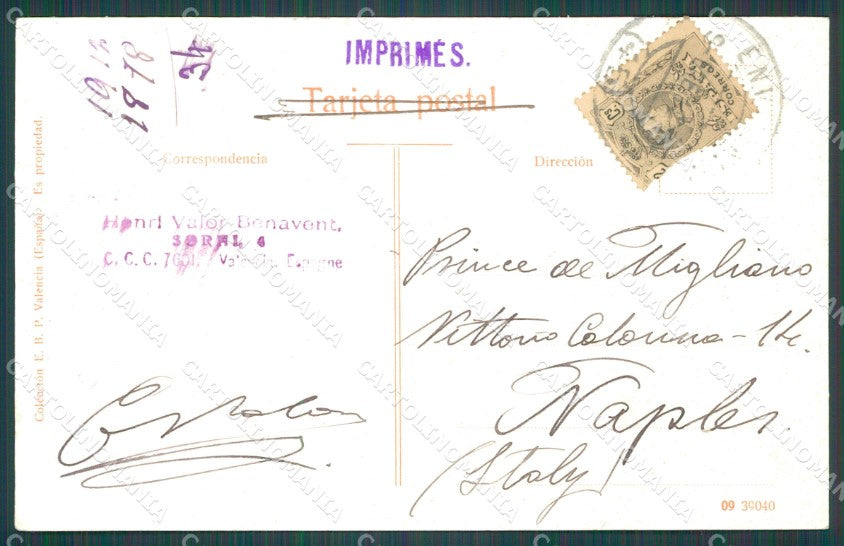 IMPRIMÉS.
34
1878
Tarjeta postal
CORREOS
Correspondencia
Dirección
Henri Valor Benavent,
C. C. C. 7601, Valencia, Espagne
Prince de Migliano
Vittorio Colonna - 14.
Naples
(Italy)
Colección E. B. P. Valencia (España) Es propiedad.
09 39040
CARTOLINOMANIA